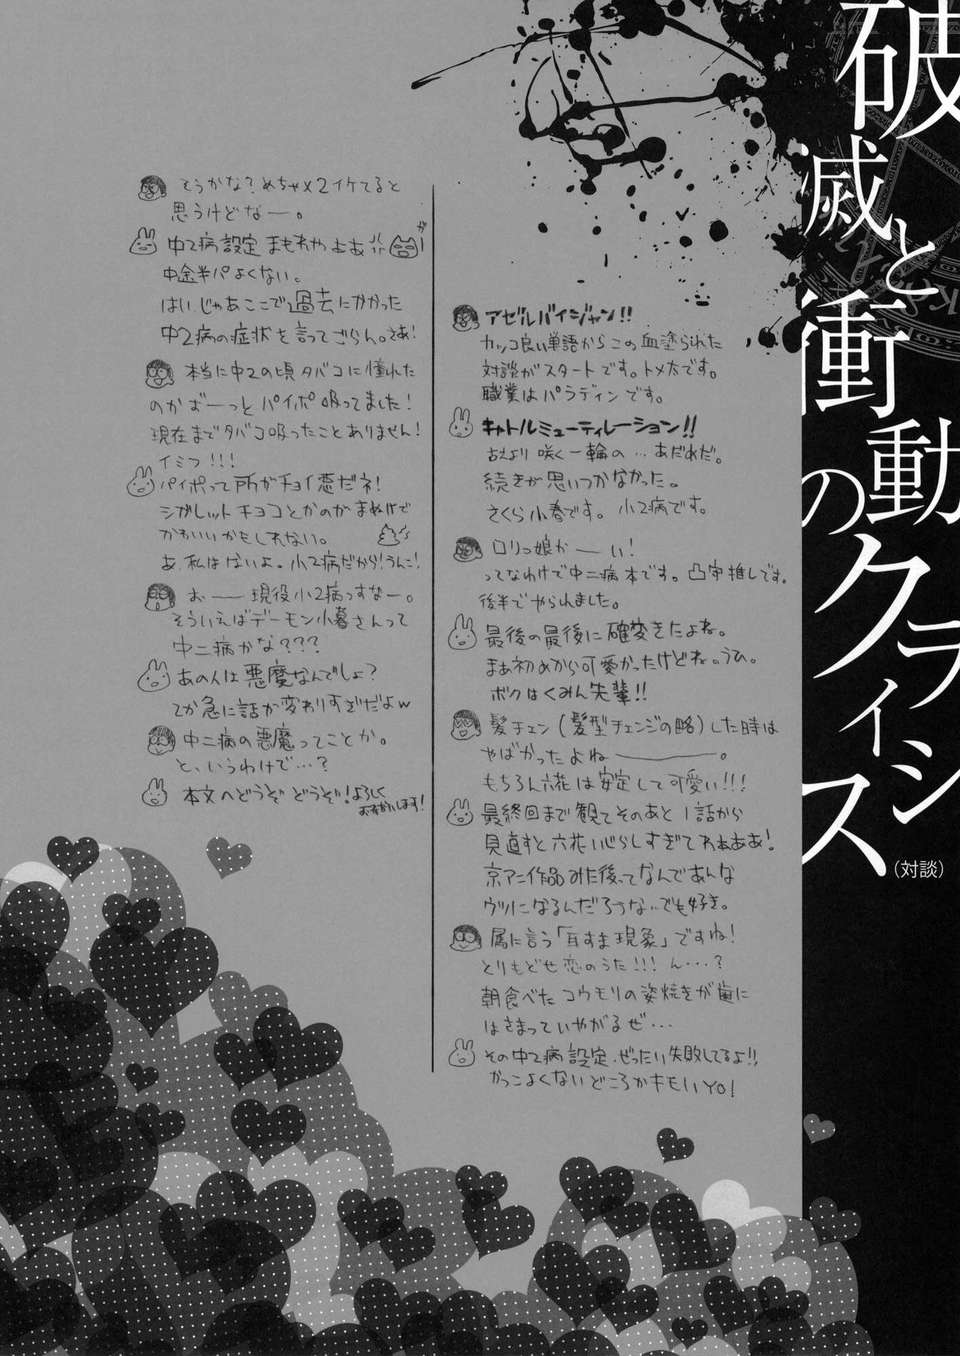 破滅と衝動のクライシス
(対談)
アゼルバイジャン!!
カッコ良い単語からこの血塗られた
対談がスタートです。トメ太です。
職業はパラディンです。
キャトルミューティレーション!!
古えより咲く一輪の…あだれだ。
続きが思いつかなかった。
さくら小春です。小2病です。
ロリっ娘かーーい!
ってなわけで中二病本です。凸守推しです。
後半でやられました。
最後の最後に確変きたよね。
まぁ初めから可愛かったけどね。うひ。
ボクはくみん先輩!!
髪チェン(髪型チェンジの略)した時は
やばかったよね―――。
もちろん六花は安定して可愛い!!!
最終回まで観てそのあと1話から
見直すと六花いじらしすぎてわぁああ!
京アニ作品みた後ってなんであんな
ウツになるんだろうな…でも好き。
属に言う「耳すま現象」ですね!
とりもどせ恋のうた!!!ん…?
朝食べたコウモリの姿焼きが歯に
はさまっていやがるぜ…
その中2病設定、ぜったい失敗してるよ!!
かっこよくないどころかキモいYO!
そうかな?めちゃ×2イケてると
思うけどなー。
中2病設定まもれやぁぁぁ
中途半パよくない。
はい、じゃあここで過去にかかった
中2病の症状を言ってごらん。さぁ!
本当に中2の頃タバコに憧れた
のかずーっとパイポ吸ってました!
現在までタバコ吸ったことありません!
イミフ!!!
パイポって所がチョイ悪だネ!
シガレットチョコとかのがまぬけで
かわいいかもしれない。
あ、私はないよ。小2病だから!うんこ!
おーー現役小2病っすなー。
そういえばデーモン小暮さんって
中二病かな???
あの人は悪魔なんでしょ?
てか急に話が変わりすぎだよw
中二病の悪魔ってことか。
と、いうわけで…?
本文へどうぞどうぞ!よろしく
おねがいします!